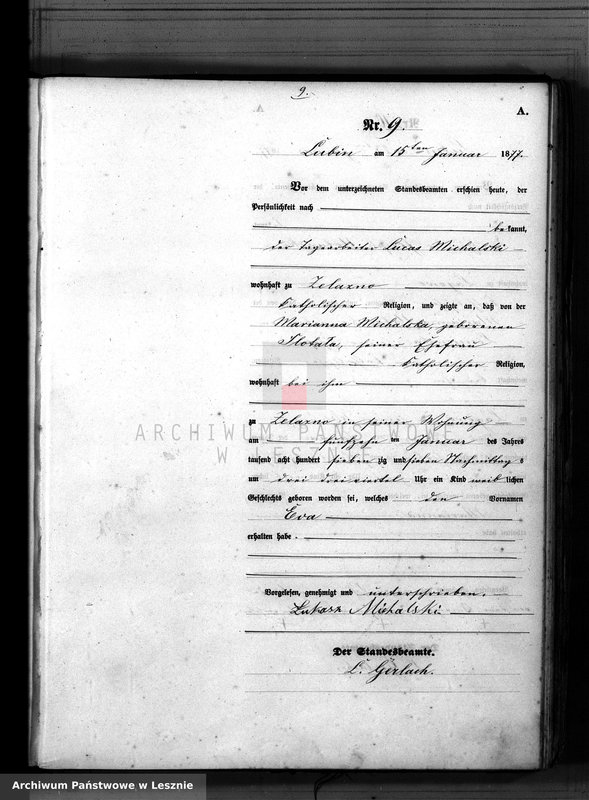 9.
A.
Nr. 9.
Lubin am 15ten Januar 1877.
Vor dem unterzeichneten Standesbeamten erschien heute, der
Persönlichkeit nach
bekannt,
der Tagearbeiter Lucas Michalski
wohnhaft zu Zelazno
katholischer Religion, und zeigte an, daß von der
Marianna Michalska, geborenen
seiner Ehefrau
katholischer Religion,
wohnhaft bei ihm
zu Zelazno in seiner Wohnung
ARCHIWUM PAŃSTWOWE
W LESZNIE
am fünfzehn ten Januar des Jahres
tausend acht hundert sieben zig und sieben Nachmittags
um drei drei viertel Uhr ein Kind weib lichen
Geschlechts geboren worden sei, welches den Vornamen
Eva
erhalten habe.
Vorgelesen, genehmigt und unterschrieben.
Lukasz Michalski
Der Standesbeamte.
L. Gerlach.
Archiwum Państwowe w Lesznie